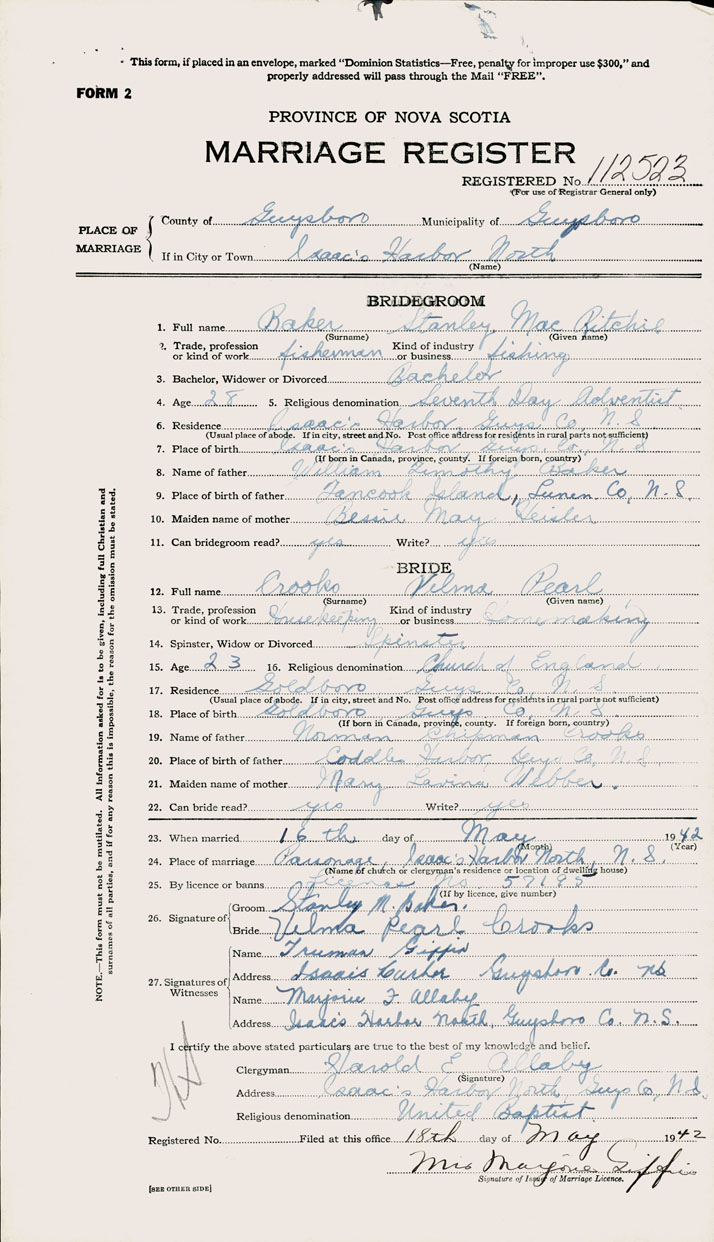 This form, if placed in an envelope, marked "Dominion Statistics—Free, penalty for improper use $300," and
properly addressed will pass through the Mail "FREE".
FORM 2
PROVINCE OF NOVA SCOTIA
MARRIAGE REGISTER
REGISTERED No. 112523
(For use of Registrar General only)
PLACE OF MARRIAGE
County of Guysboro Municipality of Guysboro
If in City or Town Isaac's Harbor North
(Name)
BRIDEGROOM
1. Full name Baker Stanley Mac Ritchie
(Surname) (Given name)
2. Trade, profession or kind of work fisherman Kind of industry or business fishing
3. Bachelor, Widower or Divorced Bachelor
4. Age 28 5. Religious denomination Seventh Day Adventist
6. Residence Isaac's Harbor, Guys Co, N.S
(Usual place of abode. If in city, street and No. Post office address for residents in rural parts not sufficient)
7. Place of birth Isaac's Harbor Guys Co, N.S
(If born in Canada, province, county. If foreign born, country)
8. Name of father William Timothy Baker
9. Place of birth of father Tancook Island, Lunen Co, N.S.
10. Maiden name of mother Bessie May Heisler
11. Can bridegroom read? yes Write? yes
BRIDE
12. Full name Crooks Velma Pearl
(Surname) (Given name)
13. Trade, profession or kind of work Housekeeping Kind of industry or business Homemaking
14. Spinster, Widow or Divorced Spinster
15. Age 23 16. Religious denomination Church of England
17. Residence Goldboro Guys Co, N.S.
(Usual place of abode. If in city, street and No. Post office address for residents in rural parts not sufficient)
18. Place of birth Goldboro Guys Co, N.S.
(If born in Canada, province, county. If foreign born, country)
19. Name of father Norman Chipman Crooks
20. Place of birth of father Coddles Harbor Guys Co, N.S
21. Maiden name of mother Mary Lavina Webber.
22. Can bride read? yes Write? yes
23. When married 16th day of May 1942
(Month) (Year)
24. Place of marriage Parsonage, Isaac's Harbor North, N.S.
(Name of church or clergyman's residence or location of dwelling house)
25. By licence or banns Licence No. 57195
(If by licence, give number)
26. Signature of
Groom Stanley M. Baker.
Bride Velma Pearl Crooks
27. Signatures of Witnesses
Name Truman Giffin
Address Isaacs Harbor Guysboro Co. NS
Name Marjorie F. Allaby
Address Isaac's Harbor North, Guysboro Co. N.S.
I certify the above stated particulars are true to the best of my knowledge and belief.
Clergyman Harold E Allaby
(Signature)
Address Isaac's Harbor North, Guys Co, N.S.
Religious denomination United Baptist
Registered No. Filed at this office 18th day of May 1942
Mrs Marjorie Giffin
Signature of Issuer of Marriage Licence.
[SEE OTHER SIDE]
NOTE.—This form must not be mutilated. All information asked for is to be given, including full Christian and
surnames of all parties, and if for any reason this is impossible, the reason for the omission must be stated.